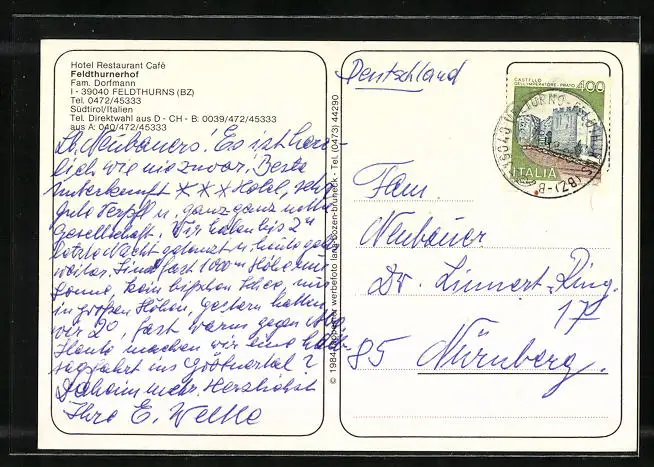 Hotel Restaurant Café
Feldthurnerhof
Fam. Dorfmann
I - 39040 FELDTHURNS (BZ)
Tel. 0472/45333
Südtirol/Italien
Tel. Direktwahl aus D - CH - B: 0039/472/45333
aus A: 040/472/45333
Lb. Neubauers! Es ist herr-
lich wie nie zuvor. Beste
Unterkunft *** Hotel, sehr
gute Verpfl. u. ganz ganz nette
Gesellschaft. Wir haben bis 2h
letzte Nacht getanzt u. heute gehts
weiter. Sind fast 1000 m Höhe
Sonne, kein bißchen Schnee, nur
in großen Höhen, gestern hatten
wir 20°, fast warm gegen
Heute machen wir eine
tagsfahrt ins
Daheim mehr. Herzlichst
Ihre E.
© 1984 werbefoto lana-bozen-bruneck - Tel. (0473) 44290
Deutschland
CASTELLO
DELL'IMPERATORE - PRATO
400
ITALIA
(BZ)-B
Fam.
Neubauer
Dr. Linnert-Ring
17
85 Nürnberg.